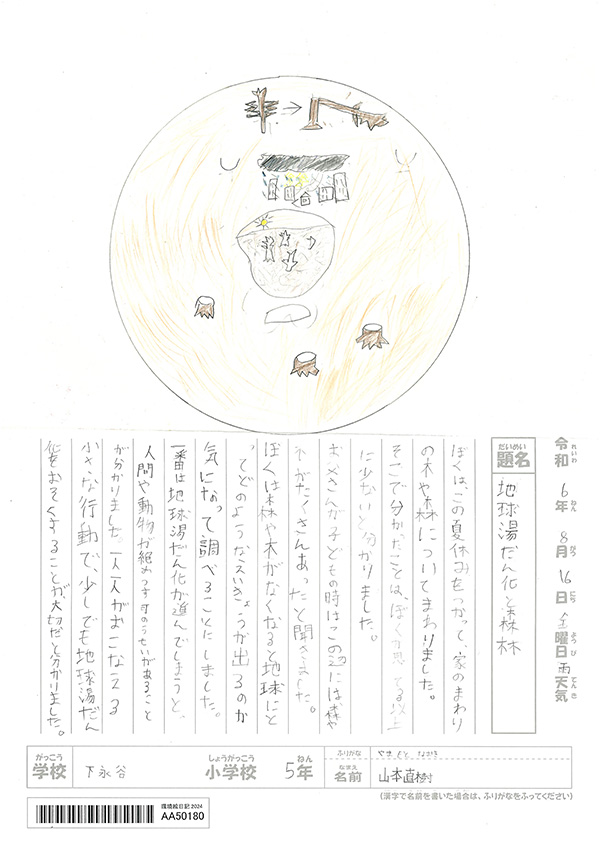 令和6年8月16日金曜日雨天気
れいわ ねん がつ にち ようび てんき
だいめい
題名
地球湯だん化と森林
ぼくは、この夏休みをつかって、家のまわり
の木や森についてまわりました。
そこで分かたことは、ぼくが思てる以上
に少ないと分かりました。
お父さんが子どもの時はこの辺には森や
木がたくさんあったと聞きました。
ぼくは森や木がなくなると地球にと
ってどのようなえいきょうが出るのか
気になって調べることにしました。
一番は地球湯だん化が進んでしまうと、
人間や動物が絶めつするのうせいがあること
が分かりました。一人一人がおこなえる
小さな行動で、少しでも地球湯だん
化をおそくすることが大切だと分かりました。
がっこう
学校
下永谷
しょうがっこう
小学校
5年
ねん
ふりがな
やまもと なおき
なまえ
名前
山本直樹
(漢字で名前を書いた場合は、ふりがなをふってください)
環境絵日記2024
AA50180